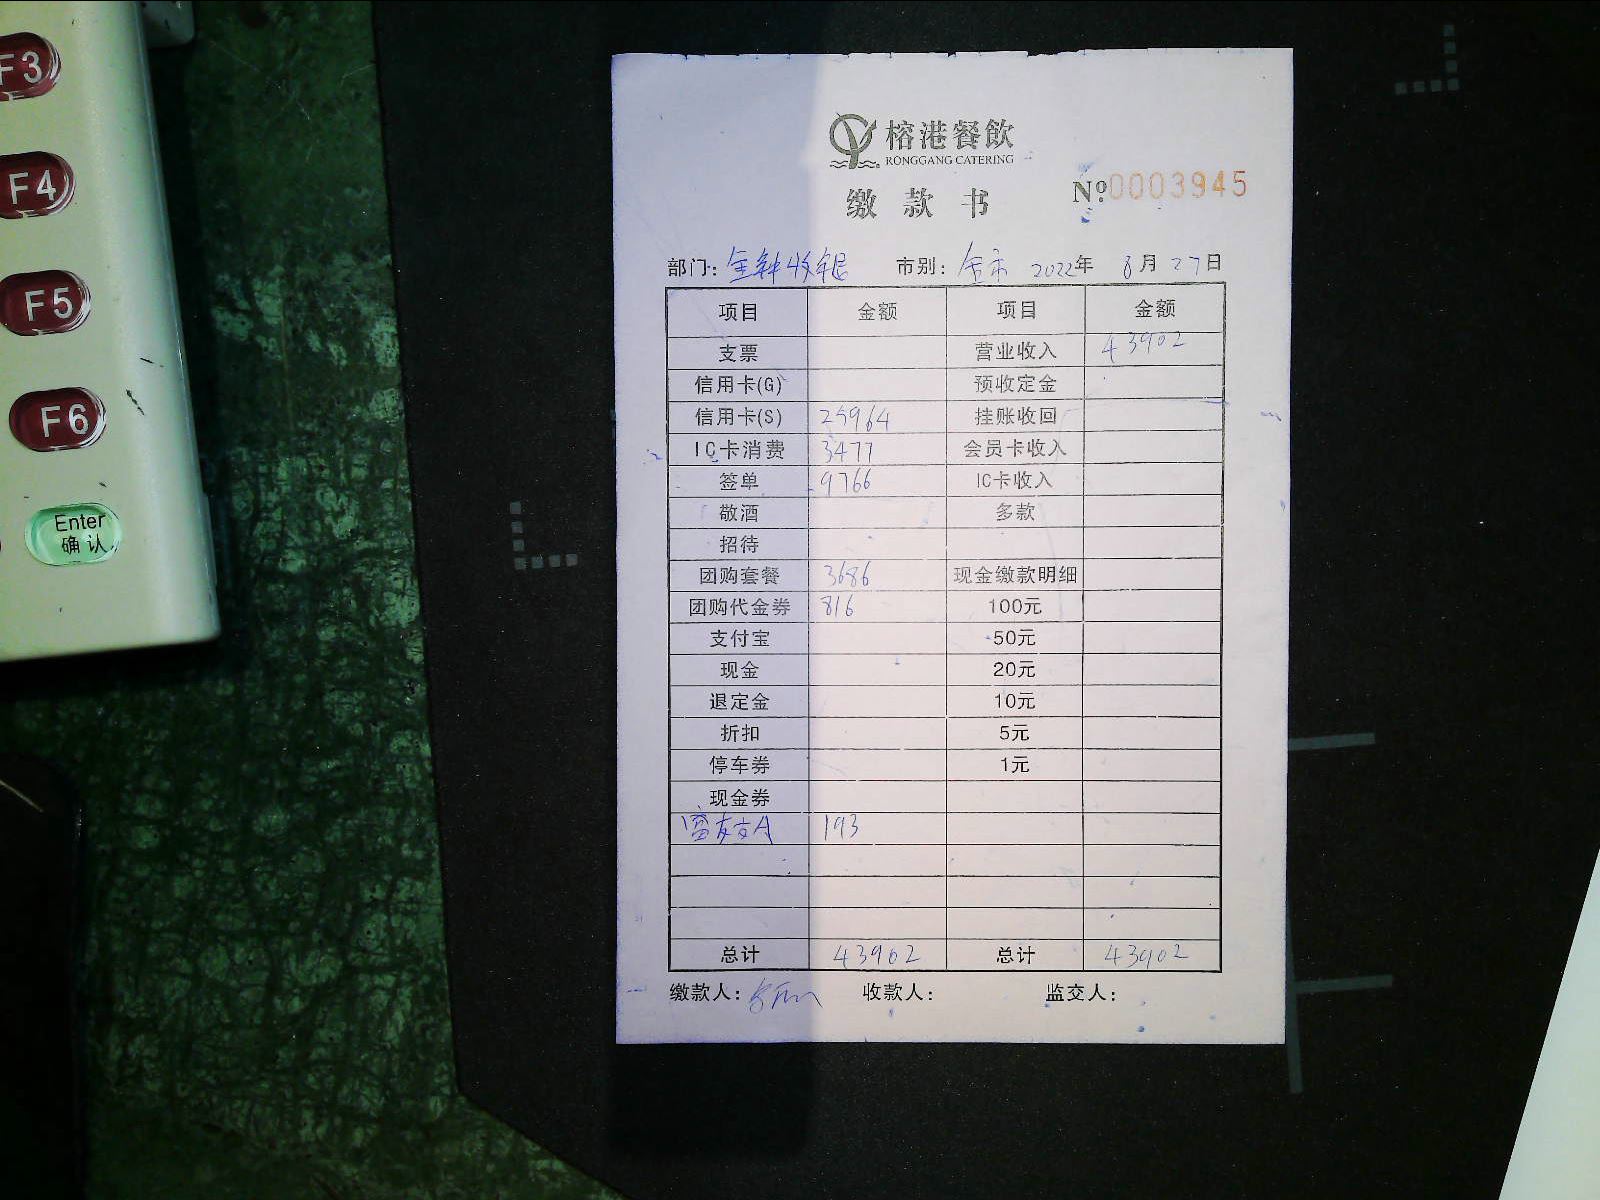 F3
F4
F5
F6
Enter
确认
榕港餐飲
RONGGANG CATERING
缴款书
Nº:0003945
部门: 金钟收银 市别: 全市 2022年 8月 27日
项目 金额 项目 金额
支票 营业收入 43902
信用卡(G) 预收定金
信用卡(S) 25964 挂账收回
IC卡消费 3477 会员卡收入
签单 9766 IC卡收入
敬酒 多款
招待
团购套餐 3686 现金缴款明细
团购代金券 816 100元
支付宝 50元
现金 20元
退定金 10元
折扣 5元
停车券 1元
现金券
193
总计 43902 总计 43902
缴款人: 收款人: 监交人: